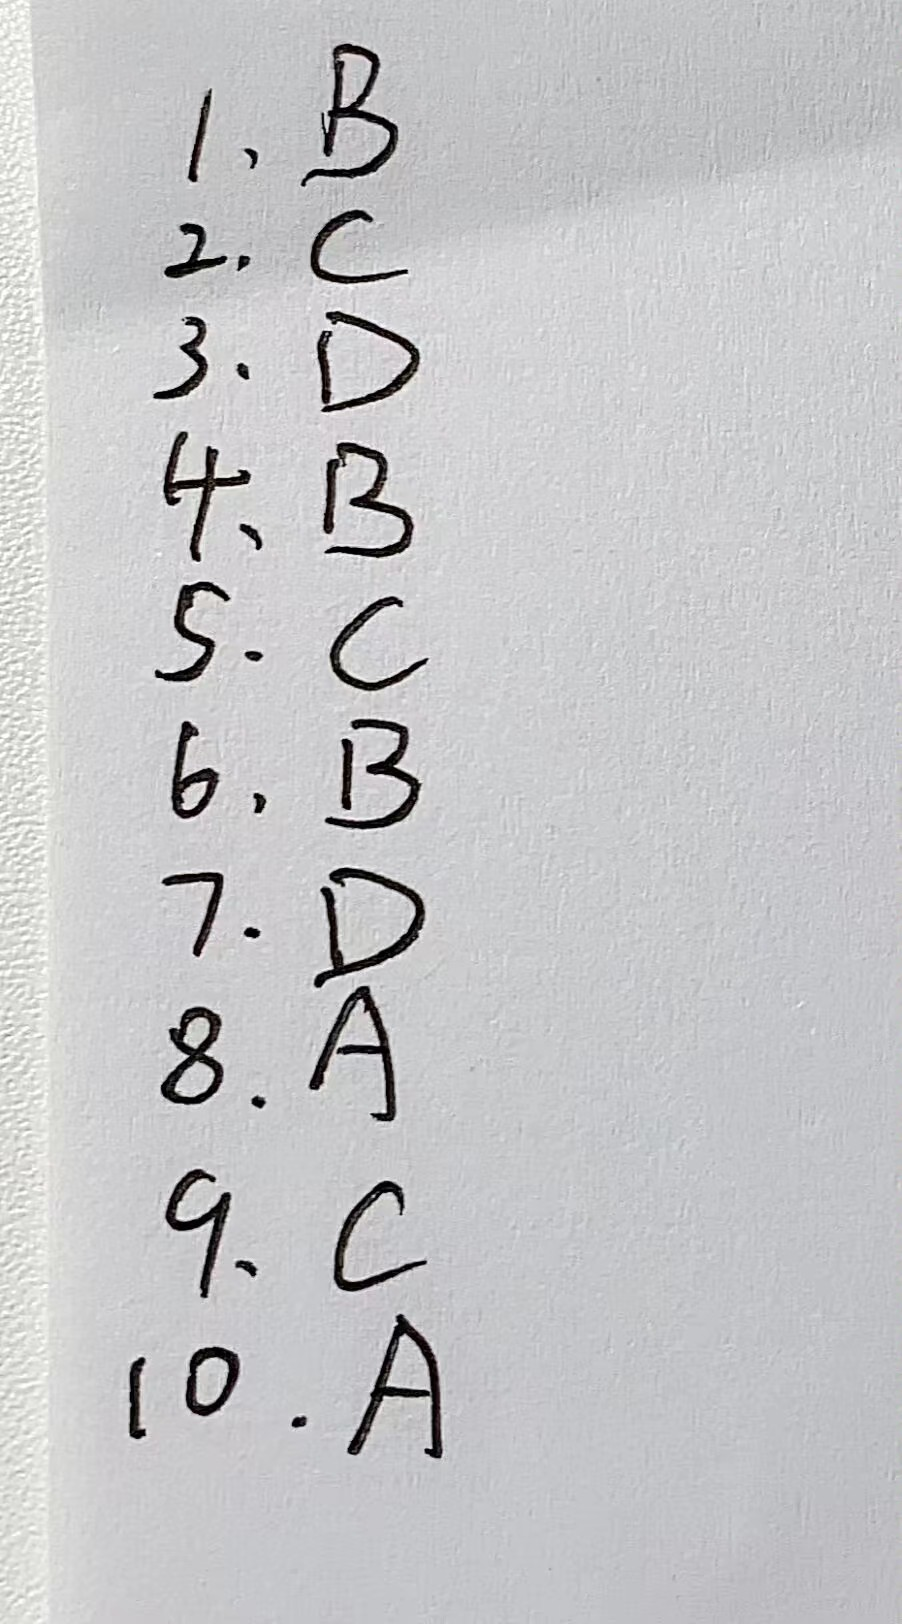 1. B
2. C
3. D
4. B
5. C
6. B
7. D
8. A
9. C
10. A